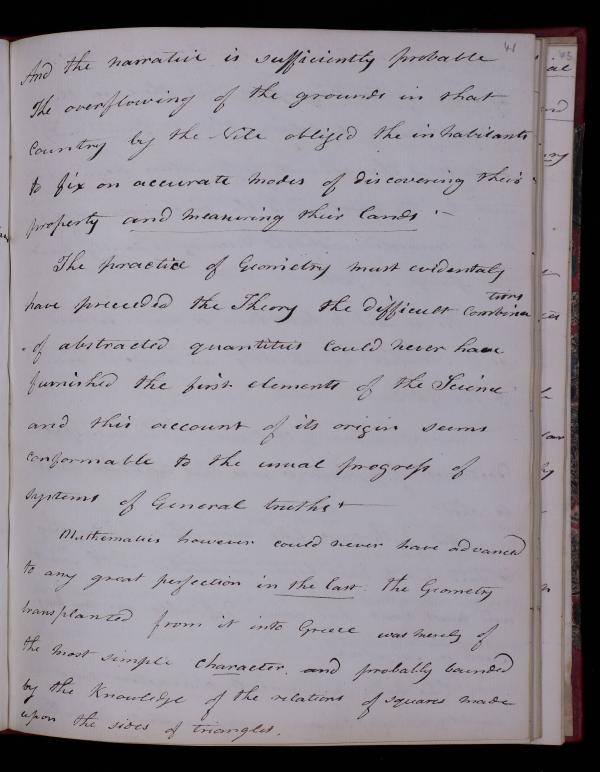 41
And the narrative is sufficiently probable
The overflowing of the grounds in that
Country by the Nile obliged the inhabitants
to fix on accurate modes of discovering their
property and measuring their lands :-
The practice of Geometry must evidentaly
have preceded the Theory the difficult Combinations
of abstracted quantities could never have
furnished the first elements of the Science
and this account of its origin seems
conformable to the usual progress of
systems of General truths
Mathematics however could never have advanced
to any great perfection in the last. the Geometry
transplanted from it into Greece was merely of
the most simple character. and probably bounded
by the Knowledge of the relations of squares made
upon the sides of triangles.